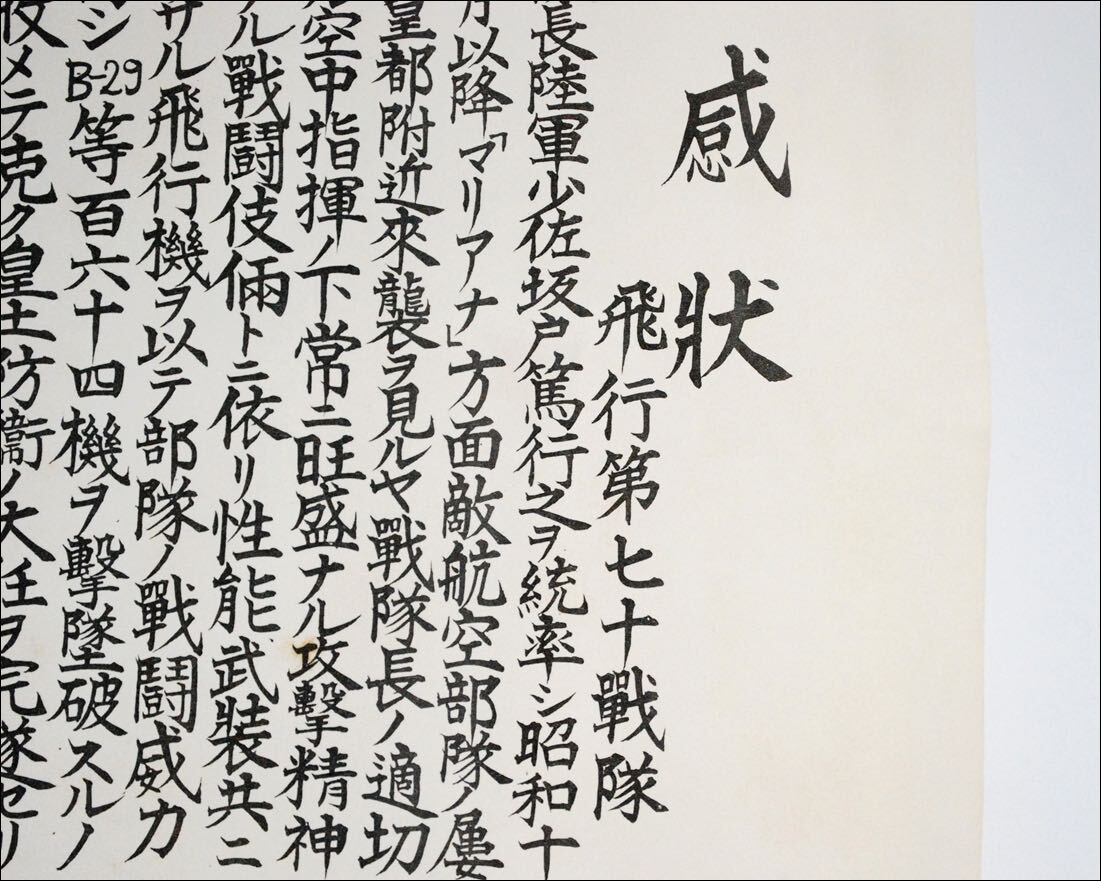 感狀
飛行第七十戰隊
長陸軍少佐坂戸篤行之ヲ統率シ昭和十
以降「マリアナ」方面敵航空部隊ノ屢
皇都附近來襲ヲ見ルヤ戰隊長ノ適切
空中指揮ノ下常ニ旺盛ナル攻擊精神
ル戰鬪伎倆トニ依リ性能武裝共ニ
サル飛行機ヲ以テ部隊ノ戰鬪威力
シB-29等百六十四機ヲ擊墜破スルノ
メテ克ク皇土防衞ノ大任ヲ完遂セリ